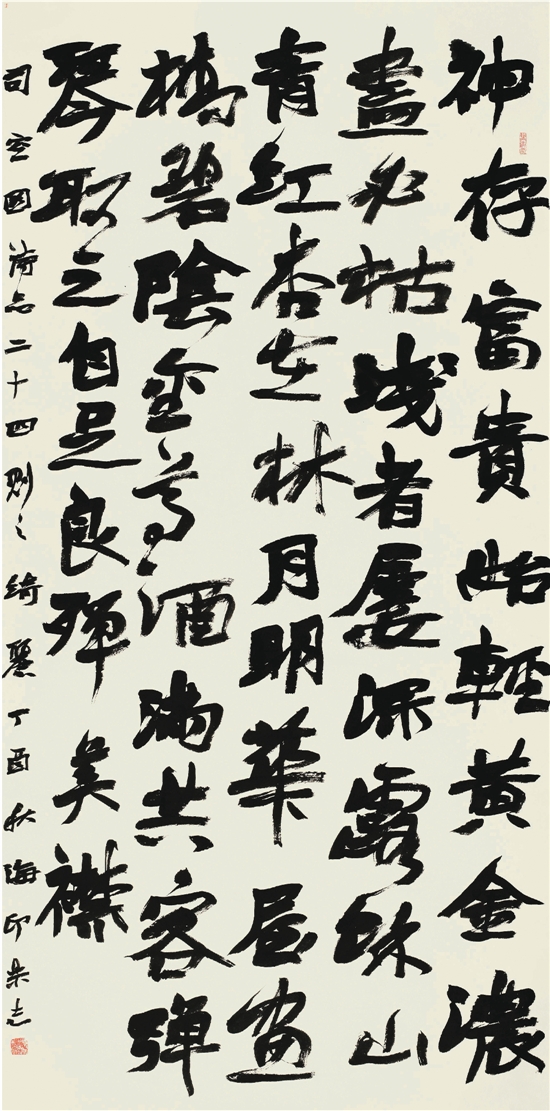 神存富貴始輕黃金濃
盡必枯淺者屢深露餘山
青紅杏在林月明華屋畫
橋碧陰金尊酒滿共客彈
琴取之自足良殫美襟
司空圖詩品二十四則之綺麗丁酉秋海印志